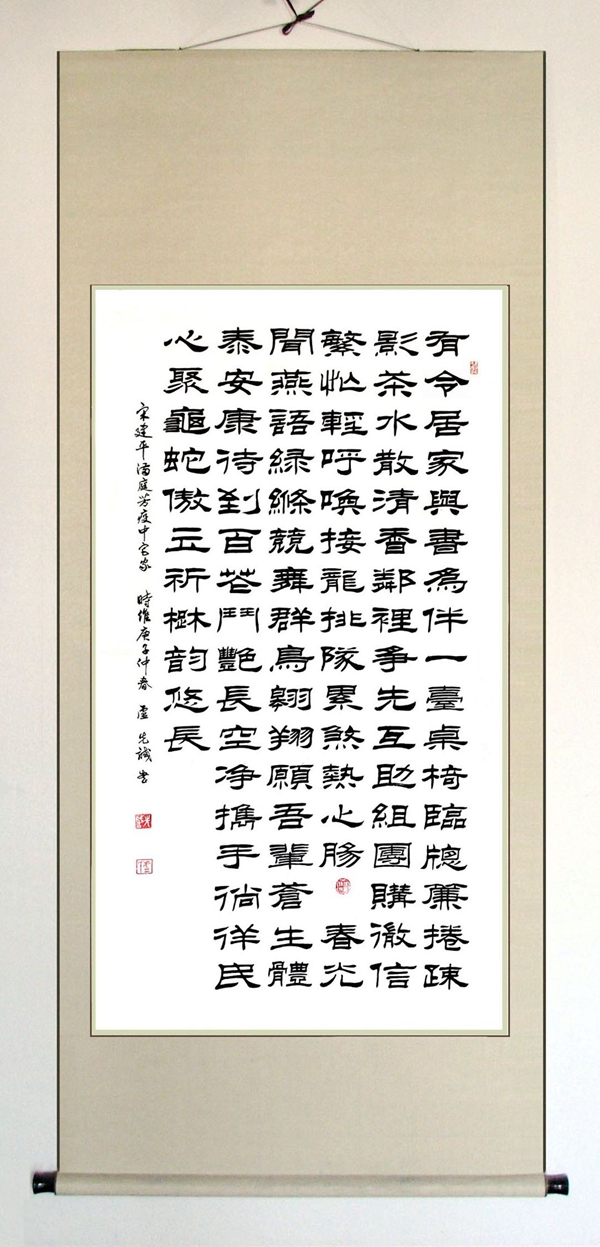 有令居家與書為伴一臺桌椅臨牕簾捲疎
影茶水散清香鄰裡爭先互助組團購微信
繁忙輕呼喚接龍排隊累煞熱心腸 春光
聞燕語綠絛競舞群鳥翱翔願吾輩蒼生體
泰安康待到百花鬥艷長空净攜手徜徉民
心聚龜蛇傲立祈楚韵悠長
宋建平滿庭芳疫中宅家 時維庚子仲春 盧先誠書